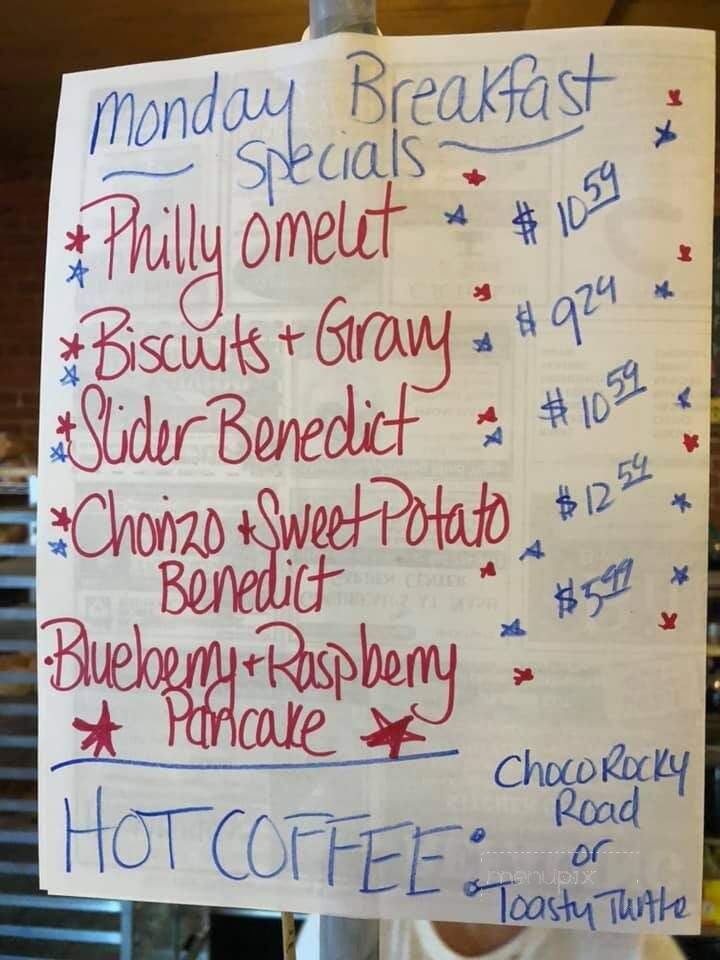 Monday Breakfast
Specials
Philly omelet $10.59
Biscuits + Gravy $9.24
Slider Benedict $10.59
Chorizo + Sweet Potato $12.59
Benedict
Blueberry + Raspberry $5.99
Pancake
HOT COFFEE: Choco Rocky
Road
or
Toasty Turtle
menupix